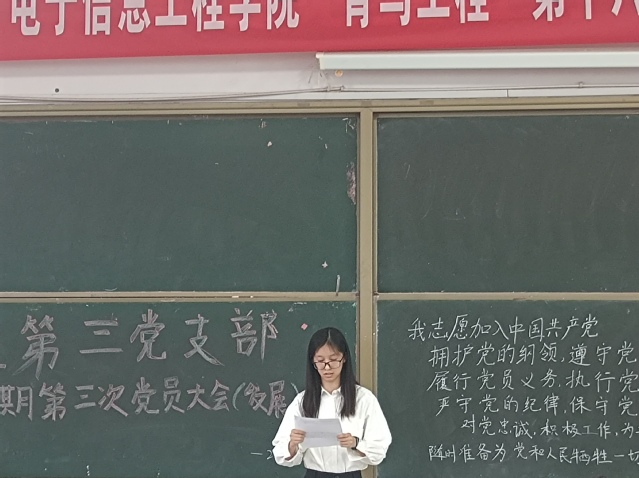 电子信息工程学院 "青马工程" 第十八
第三党支部
期第三次党员大会(发展)
我志愿加入中国共产党
拥护党的纲领,遵守党
履行党员义务,执行党
严守党的纪律,保守党
对党忠诚,积极工作,为
随时准备为党和人民牺牲一切